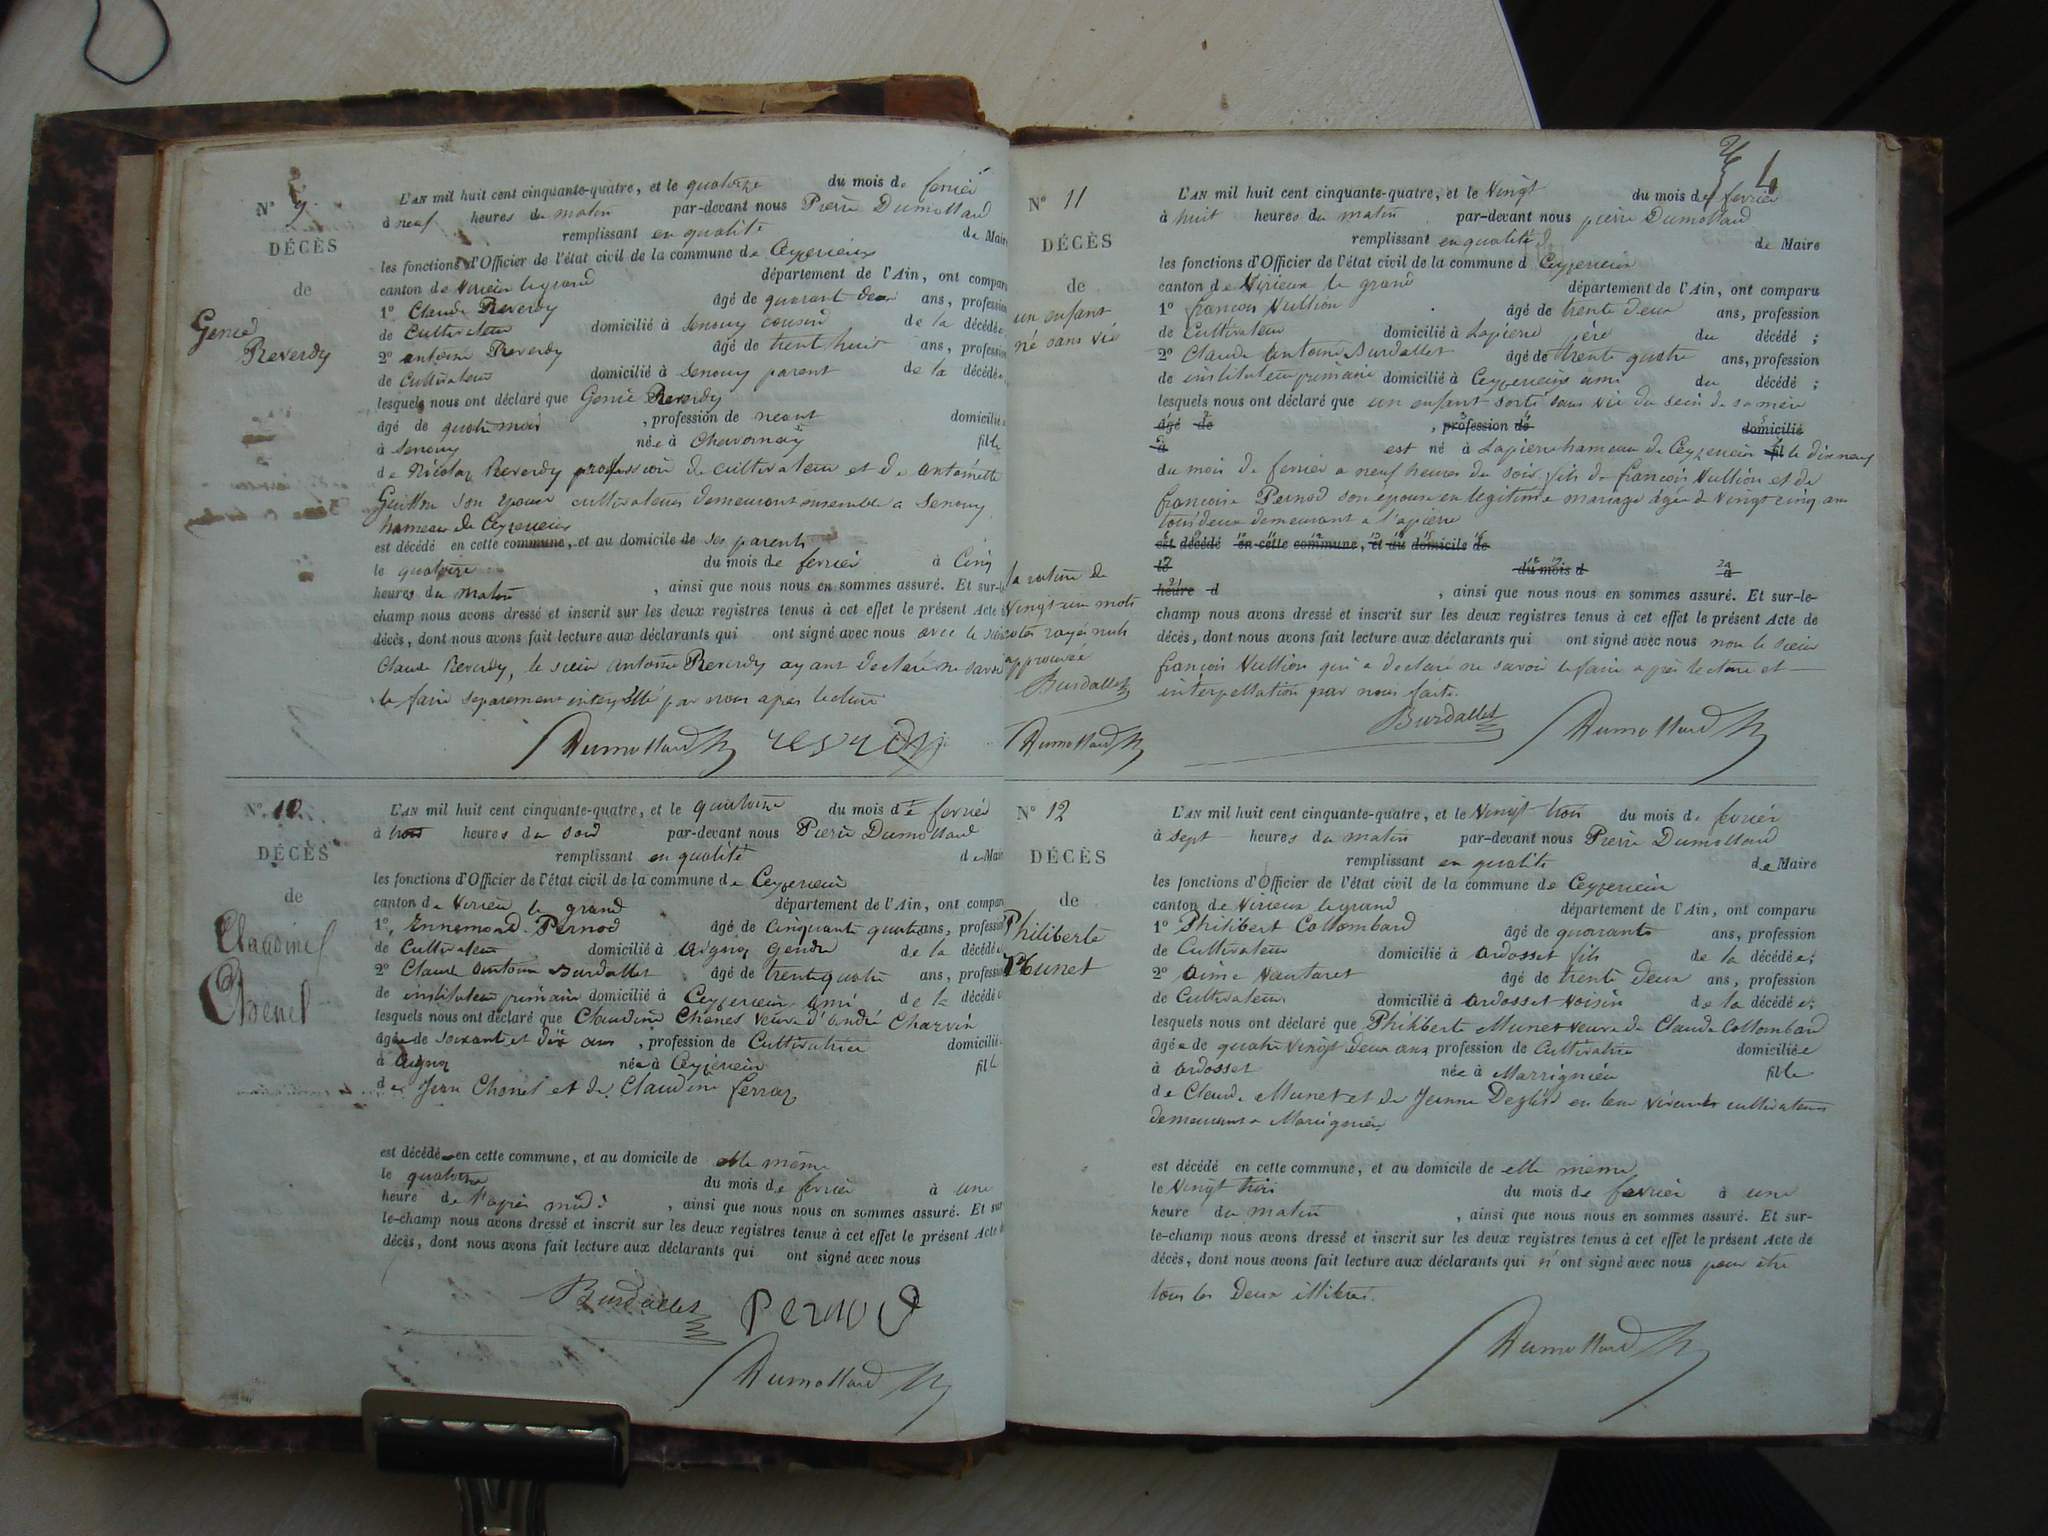 N° 9
DÉCÈS
de
Genie
Reverdy
L'AN mil huit cent cinquante-quatre, et le quatorze du mois de fevrier
à neuf heures du matin par-devant nous Pierre Dumollard
remplissant en qualité de Maire
les fonctions d'Officier de l'état civil de la commune de Ceyzerieux
canton de Virieu le grand département de l'Ain, ont comparu
1° Claude Reverdy âgé de quarant deux ans, profession
de Cultivateur domicilié à Senouy cousin de la décédée
2° antoine Reverdy âgé de trente huit ans, profession
de Cultivateur domicilié à Senouy parent de la décédée
lesquels nous ont déclaré que Genie Reverdy
âgé de quatre mois , profession de neant domicilié
à Senouy née à Chavornay fille
de Nicolas Reverdy profession de cultivateur et de antoinette
Guitton son epouse cultivateurs demeurant ensemble a Senouy
hameau de Ceyzerieux
est décédé en cette commune, et au domicile de ses parents
le quatorze du mois de fevrier à Cinq
heures du matin , ainsi que nous nous en sommes assuré. Et sur-le-
champ nous avons dressé et inscrit sur les deux registres tenus à cet effet le présent Acte
décès, dont nous avons fait lecture aux déclarants qui ont signé avec nous avec le sieur
Claude Reverdy, le sieur antoine Reverdy ayant declaré ne savoir
le faire separement interpellé par nous apres lecture
Dumollard reverdy
N° 10
DÉCÈS
de
Claudine
Chenel
L'AN mil huit cent cinquante-quatre, et le quatorze du mois de fevrier
à trois heures du soir par-devant nous Pierre Dumollard
remplissant en qualité de Maire
les fonctions d'Officier de l'état civil de la commune de Ceyzerieu
canton de Virieu le grand département de l'Ain, ont comparu
1° Ennemond Pernod âgé de Cinquante quatre ans, profession
de Cultivateur domicilié à Aignoz Gendre de la décédée
2° Claude Antoine Burdallet âgé de trente quatre ans, profession
de instituteur primaire domicilié à Ceyzerieu ami de la décédée
lesquels nous ont déclaré que Claudine Chenel veuve d'andré Charvin
âgée de soixante et dix ans , profession de Cultivatrice domicilié
à Aignoz née à Ceyzerieu fille
de Jean Chenel et de Claudine ferraz
est décédé en cette commune, et au domicile de elle même
le quatorze du mois de fevrier à une
heure de l'après midi , ainsi que nous nous en sommes assuré. Et sur
le-champ nous avons dressé et inscrit sur les deux registres tenus à cet effet le présent Acte de
décès, dont nous avons fait lecture aux déclarants qui ont signé avec nous
Burdallet Pernod
Dumollard
N° 11
DÉCÈS
de
un enfant
né sans vie
L'AN mil huit cent cinquante-quatre, et le Vingt du mois de fevrier
à huit heures du matin par-devant nous pierre Dumollard
remplissant en qualité de Maire
les fonctions d'Officier de l'état civil de la commune d Ceyzerieu
canton de Virieux le grand département de l'Ain, ont comparu
1° francois Vullion âgé de trente deux ans, profession
de Cultivateur domicilié à Lapierre père du décédé ;
2° Claude Antoine Burdallet âgé de trente quatre ans, profession
de instituteur primaire domicilié à Ceyzerieu ami du décédé ;
lesquels nous ont déclaré que un enfant sorti sans vie du sein de sa mère
âgé de , profession de domicilié
à est né à Lapierre hameau de Ceyzerieu fil le dixneuf
du mois de fevrier a neuf heures du soir, fils de francois Vullion et de
francoise Pernod son epouse en legitime mariage agée de Vingt cinq ans
tous deux demeurant a lapierre
est décédé en cette commune, et au domicile de
le du mois d à
heure d , ainsi que nous nous en sommes assuré. Et sur-le-
champ nous avons dressé et inscrit sur les deux registres tenus à cet effet le présent Acte de
décès, dont nous avons fait lecture aux déclarants qui ont signé avec nous non le sieur
francois Vullion qui a declaré ne savoir le faire après lecture et
interpellation par nous faite.
Burdallet Dumollard
la rature de
Vingt-un mots
rayés nuls
approuvée
Burdallet
Dumollard
N° 12
DÉCÈS
de
Philiberte
Munet
L'AN mil huit cent cinquante-quatre, et le Vingt trois du mois de fevrier
à sept heures du matin par-devant nous Pierre Dumollard
remplissant en qualité de Maire
les fonctions d'Officier de l'état civil de la commune de Ceyzerieu
canton de Virieux le grand département de l'Ain, ont comparu
1° Philibert Collombard âgé de quarante ans, profession
de Cultivateur domicilié à Ardosset fils de la décédée;
2° Aimé Vautaret âgé de trente deux ans, profession
de Cultivateur domicilié à Ardosset Voisin de la décédée;
lesquels nous ont déclaré que Philiberte Munet veuve de Claude Collombard
âgée de quatre vingt deux ans profession de Cultivatrice domiciliée
à Ardosset née à Marrignieu fille
de Claude Munet et de Jeanne Deglise en leur vivants cultivateurs
demeurant a Marrignieu
est décédé en cette commune, et au domicile de elle même
le Vingt trois du mois de fevrier à une
heure du matin , ainsi que nous nous en sommes assuré. Et sur-
le-champ nous avons dressé et inscrit sur les deux registres tenus à cet effet le présent Acte de
décès, dont nous avons fait lecture aux déclarants qui n'ont signé avec nous pour être
tous les Deux illitérés.
Dumollard